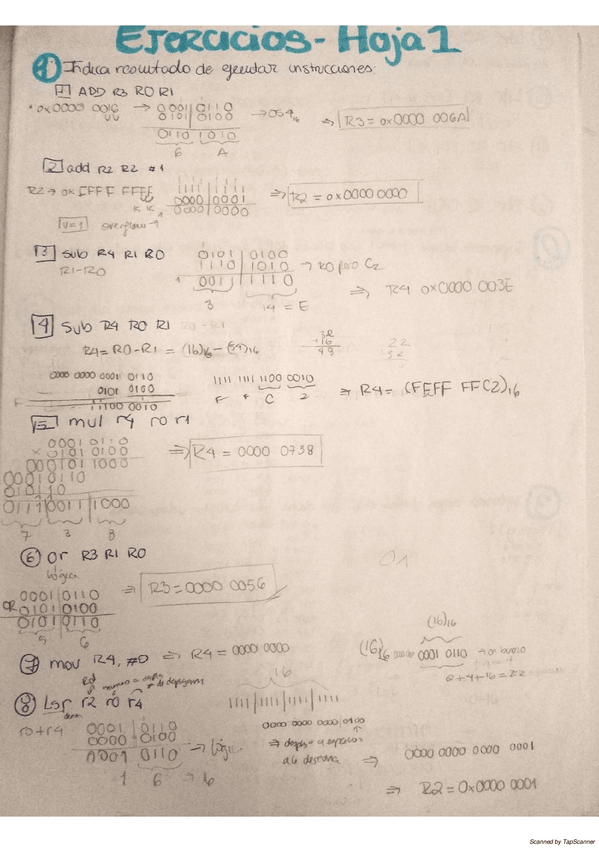 EJERCICIOS - Hoja 1
1) Indica resultado de ejecutar instrucciones:
1 ADD R3 R0 R1
• 0x0000 0016 → 0001 0110 → 0054₁₆ ⇒ R3 = 0x0000 006A
0101 0100
0110 1010
6 A
2 add R2 R2 #1
R2 → 0x FFFF FFFF 1111 1111 ⇒ R2 = 0x0000 0000
0000 0001
0000 0000
V=1 overflow
3 sub R4 R1 R0 0101 0100
R1-R0 1110 1010 → R0 pero C2
1 0011 1110 ⇒ R4 0x0000 003E
3 14 = E
4 Sub R4 R0 R1
R4 = R0 - R1 = (16)₁₆ - (54)₁₆
0000 0000 0001 0110 1111 1111 1100 0010 ⇒ R4 = (FFFF FFC2)₁₆
0101 0100 F F C 2
11100 0010
5 mul r4 r0 r1
0001 0110
x 0101 0100 ⇒ R4 = 0000 0738
000101 1000
00010110
010110
0111 0011 1000
7 3 8
6 or R3 R1 R0
lógica
0001 0110 ⇒ R3 = 0000 0056
OR 0101 0100
0101 0110
5 6
7 mov R4, #0 ⇒ R4 = 0000 0000
(16)₁₆
(16)₁₆ 0001 0110
2+4+16=22
8 Lsr r2 r0 r4
16
r0+r4 0001 0110
0000 0100
0001 0110 → lógica
1 6 → 16
0000 0000 0000 0100
⇒
0000 0000 0000 0001
⇒ R2 = 0x0000 0001
Scanned by TapScanner